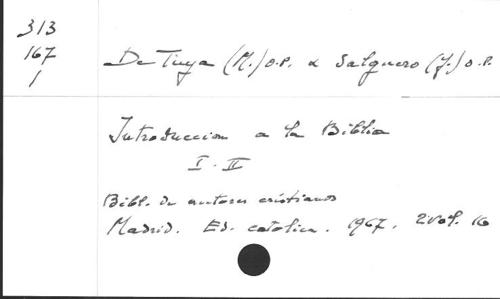 313
167
1
De Tuya (M.) O.P. & Salguero (J.) O.P.
Introduccion a la Biblia
I - II
Bibl. de autores cristianos
Madrid. Ed. catolica. 1967. 2 vol. 16